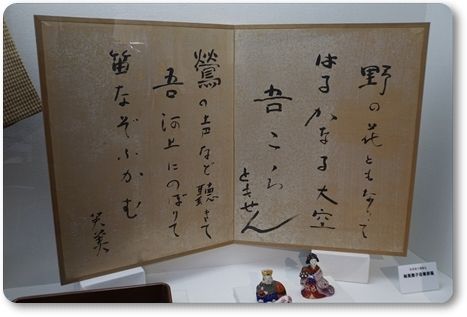 野の花とも
はるかなる大空
吾こゝろ
ときせん
鶯の声など聴きて
吾河上にのぼりて
笛なぞふかむ
芙美